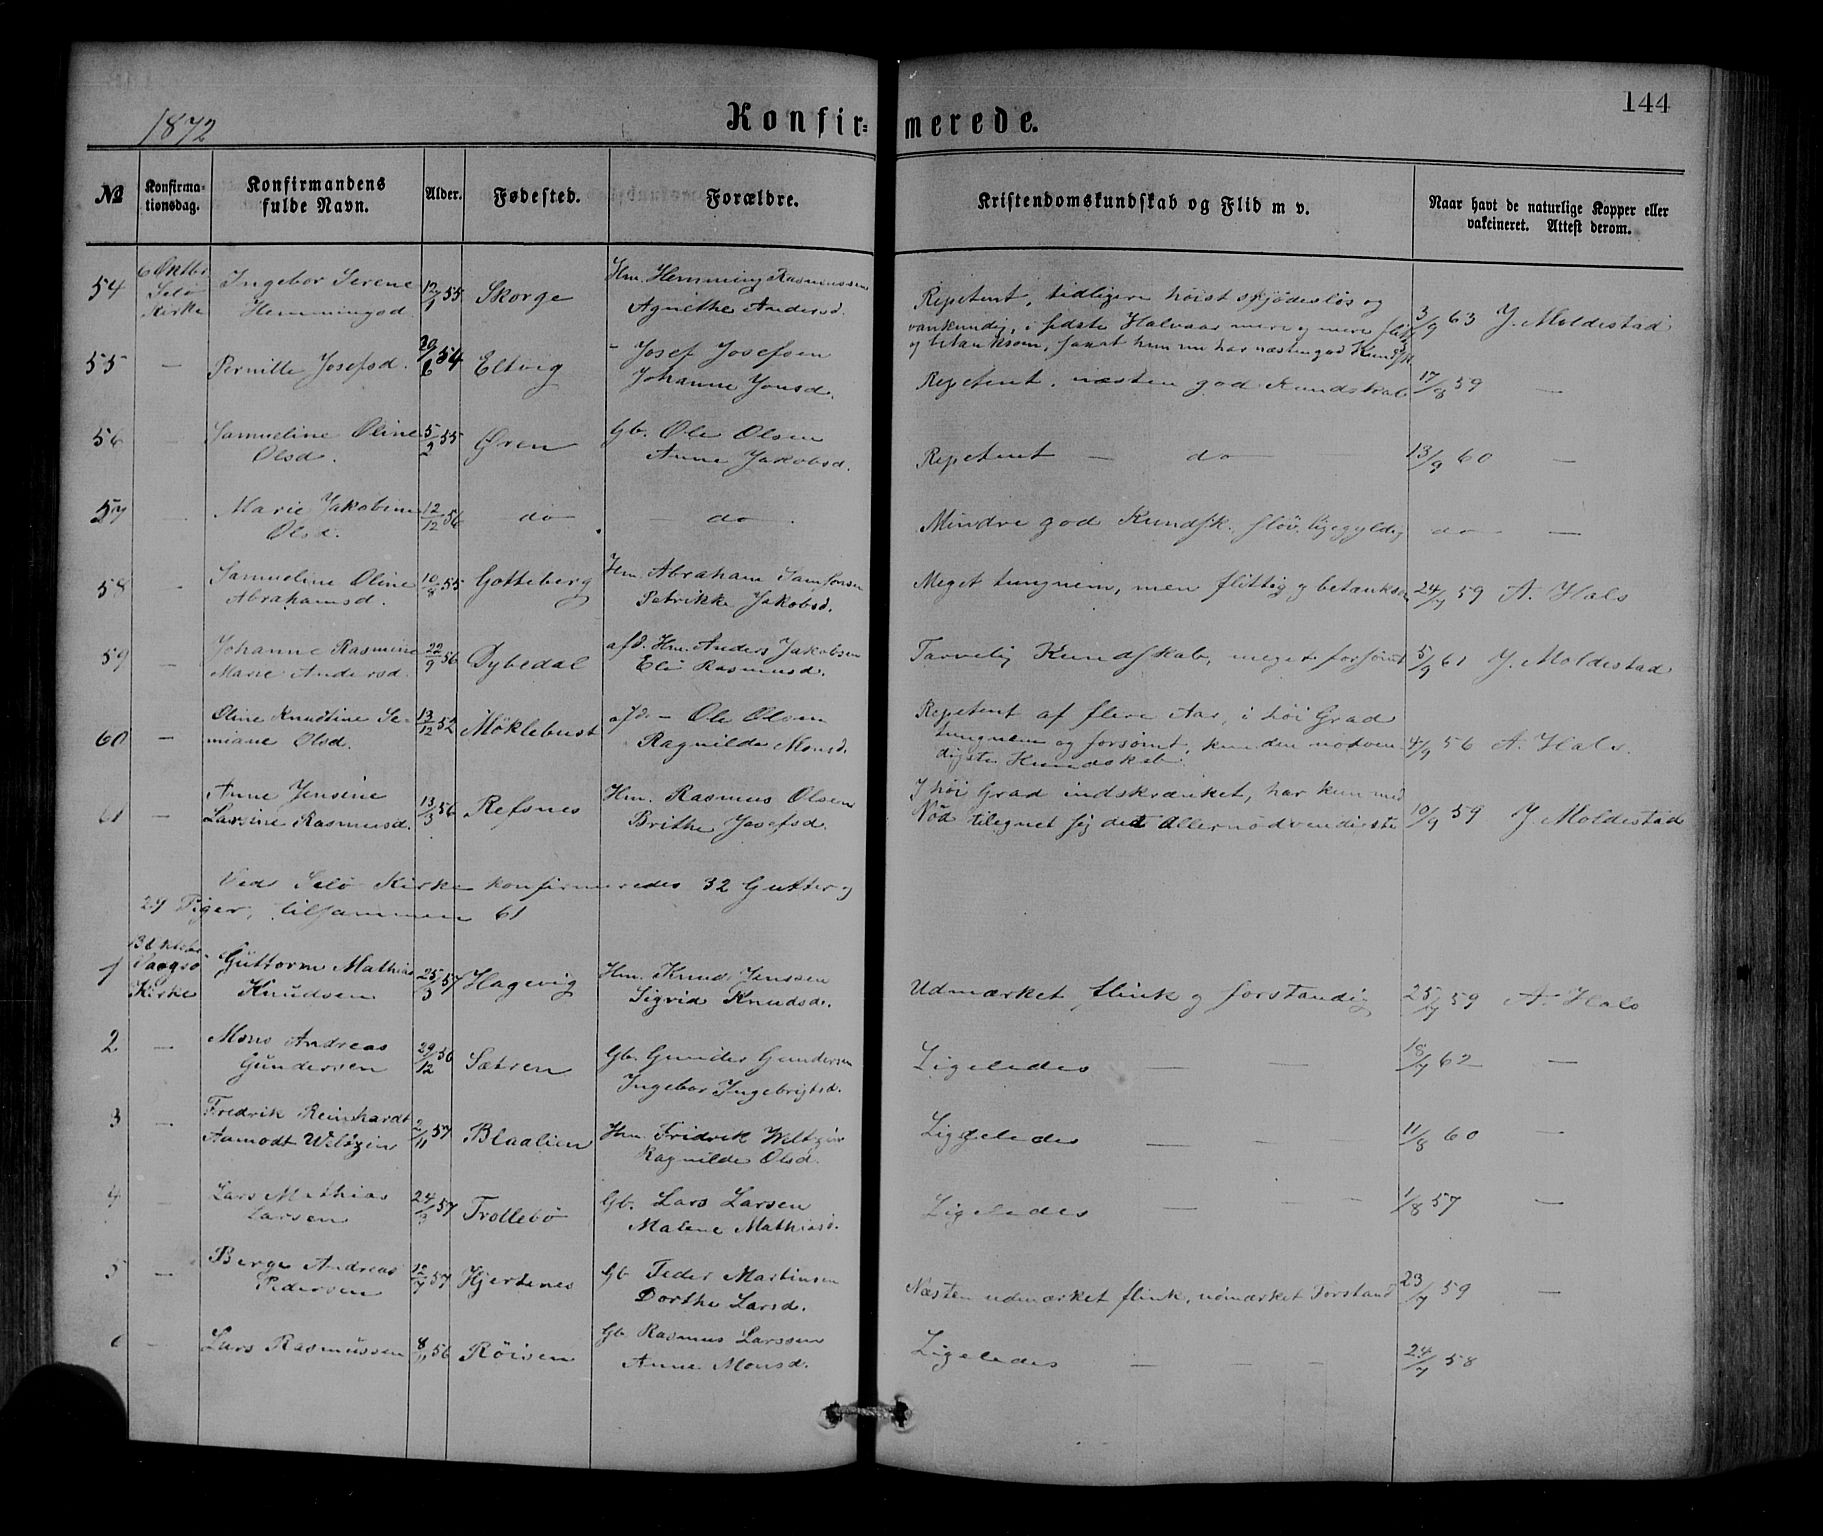 144
1872
Konfirmerede.
№ Konfirmationsdag. Konfirmandens fulde Navn. Alder. Fødested. Forældre. Kristendomskundskab og Flid m v. Naar havt de naturlige Kopper eller vakcineret. Attest derom.
54 6 Oktbr Selö Kirke Ingebor Serene Hemmingsd. 12/1 55 Skorge Hm. Hemming Rasmussen Agnethe Andersd. Repetent, tidligere höist skjödeslös og vankundig, i sidste Halvaar mere og mere flitt. og betænksom, samt hun nu har næsten god Kundsk. 3/9 63 J. Moldestad
55 — Pernille Josefsd. 29/6 54 Eltvig – Josef Josefsen Johanne Jonsd. Repetent. næsten god Kundskab 17/8 59 —
56 — Samueline Oline Olsd. 5/2 55 Øren Gb. Ole Olsen Anne Jakobsd. Repetent — do 13/9 60 —
57 — Marie Jakobine Olsd. 12/12 56 — do — — do — Mindre god Kundsk. slöv, ligegyldig do —
58 — Samueline Oline Abrahamsd. 10/8 55 Gotteberg Hm. Abraham Samsonsen Petrikke Jakobsd. Meget tungnem, men flittig og betænksom 24/7 59 A. Hals
59 — Johanne Rasmine Marie Andersd. 22/9 56 Dybedal afd. Hm. Anders Jakobsen Eli Rasmusd. Tarvelig Kundskab, meget forsömt 5/9 61 J. Moldestad
60 — Oline Knudtine Semiane Olsd. 13/12 52 Möklebust afd. – Ole Olsen Ragnilde Monsd. Repetent af flere Aar, i höi Grad tungnem og forsömt, kun den nödvendigste Kundskab. 4/9 56 A. Hals.
61 — Anne Jensine Larsine Rasmusd. 13/3 56 Refsnes Hm. Rasmus Olsen Brithe Josefsd. I höi Grad indskrænket, har kun med Nöd tilegnet sig det Allernödvendigste 10/9 59 J. Moldestad
Ved Selö Kirke konfirmeredes 32 Gutter og
29 Piger, tilsammen 61
1 13 Oktober Vaagsö Kirke Guttorm Mathias Knudsen 25/3 57 Hagevig Hm. Knud Jenssen Sigrid Knudsd. Udmærket flink og forstandig 25/7 59 A. Hals
2 — Mons Andreas Gundersen 29/12 56 Sætren Gb. Gunder Gundersen Ingebor Ingebrigtsd. Ligeledes — — 18/7 62 —
3 — Fredrik Reinhardt Aamodt Weltzin 2/11 57 Blaalien Hm. Fridrik Weltzin Ragnilde Olsd. Ligeledes — — 11/8 60 —
4 — Lars Mathias Larsen 24/3 57 Trollebö Gb. Lars Larsen Malene Mathiasd. Ligeledes — — — 1/8 57 —
5 — Berge Andreas Pedersen 12/7 57 Hjertenes Gb. Peder Martinsen Dorthe Larsd. Næsten udmærket flink, udmærket Forstand 23/7 59 —
6 — Lars Rasmussen 8/11 56 Röisen Gb. Rasmus Larssen Anne Monsd. Ligeledes — — — 24/7 58